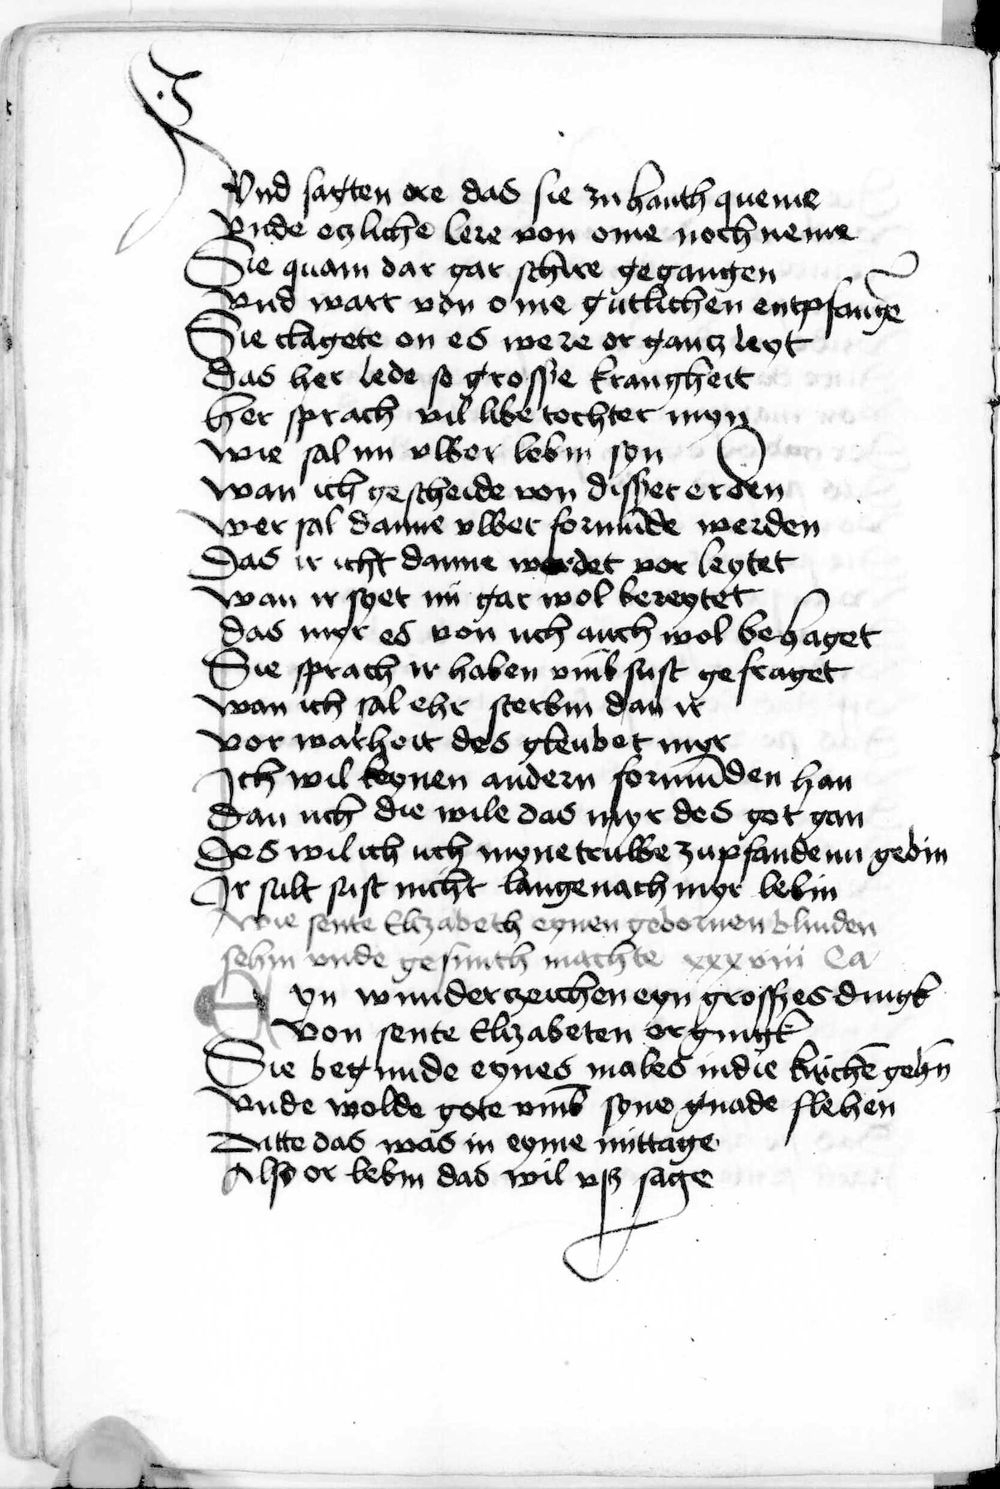 Vnd sagten ore das sie zu hanth queme
Vnde etzliche lere von ome noch neme
Sie quam dar gar schire gegangen
Vnd wart von ome gutlichen entpfange
Sie clagete on es were or gantz leyt
Das her lede so grosse krangheit
her sprach vil libe tochter myn
Wie sal nu vwer lebin syn
Wan ich gescheide von disser erden
Wer sal danne vwer formūde werden
Das ir icht danne werdet vor leytet
Wan ir syet nū gar wol bereytet
das myr es von uch auch wol behaget
Sie sprach ir haben vmb sust gefraget
Wan ich sal ehr sterbin dan ir
Vor warheit des gleubet myr
Ich wil keynen andern formūden han
Dan uch die wile das myr des got gan
Des wil ich uch myne truwe zu pfande nu gebin
Ir sult sust nicht lange nach myr lebin
Wie sente Elizabeth eynen gebornen blinden
sehin vnde gesunth machte xxxviii Ca
Eyn wunderzeichen eyn grosses dingk
Von sente Elizabeten erginngk
Sie begunde eynes males in die kirchē gehn
Vnde wolde gote vmb syne gnade flehen
Ditte das was in eyme mittage
Also or lebin das wil vsz sage